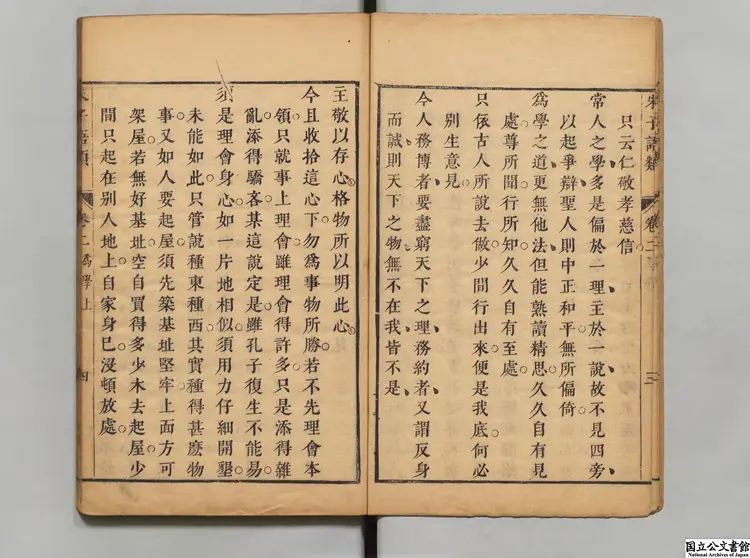 朱子語類
卷二
三
只云仁敬孝慈信
常人之學多是偏於一理主於一說故不見四旁
以起爭辯聖人則中正和平無所偏倚
爲學之道更無他法但能熟讀精思久久自有見
處尊所聞行所知久久自有至處
只依古人所說去做少間行出來便是我底何必
別生意見
今人務博者要盡窮天下之理務約者又謂反身
而誠則天下之物無不在我皆不是
主敬以存心格物所以明此心
今且收拾這心下勿爲事物所勝若不先理會本
領只就事上理會雖理會得許多只是添得雜
亂添得驕吝某這說定是雖孔子復生不能易
須是理會身心如一片地相似須用力仔細開墾
未能如此只管說種東種西其實種得甚麽物
事又如人要起屋須先築基址堅牢上面方可
架屋若無好基址空自買得多少木去起屋少
間只起在別人地上自家身已沒頓放處
朱子語類
卷二爲學上
四
国立公文書館
National Archives of Japan